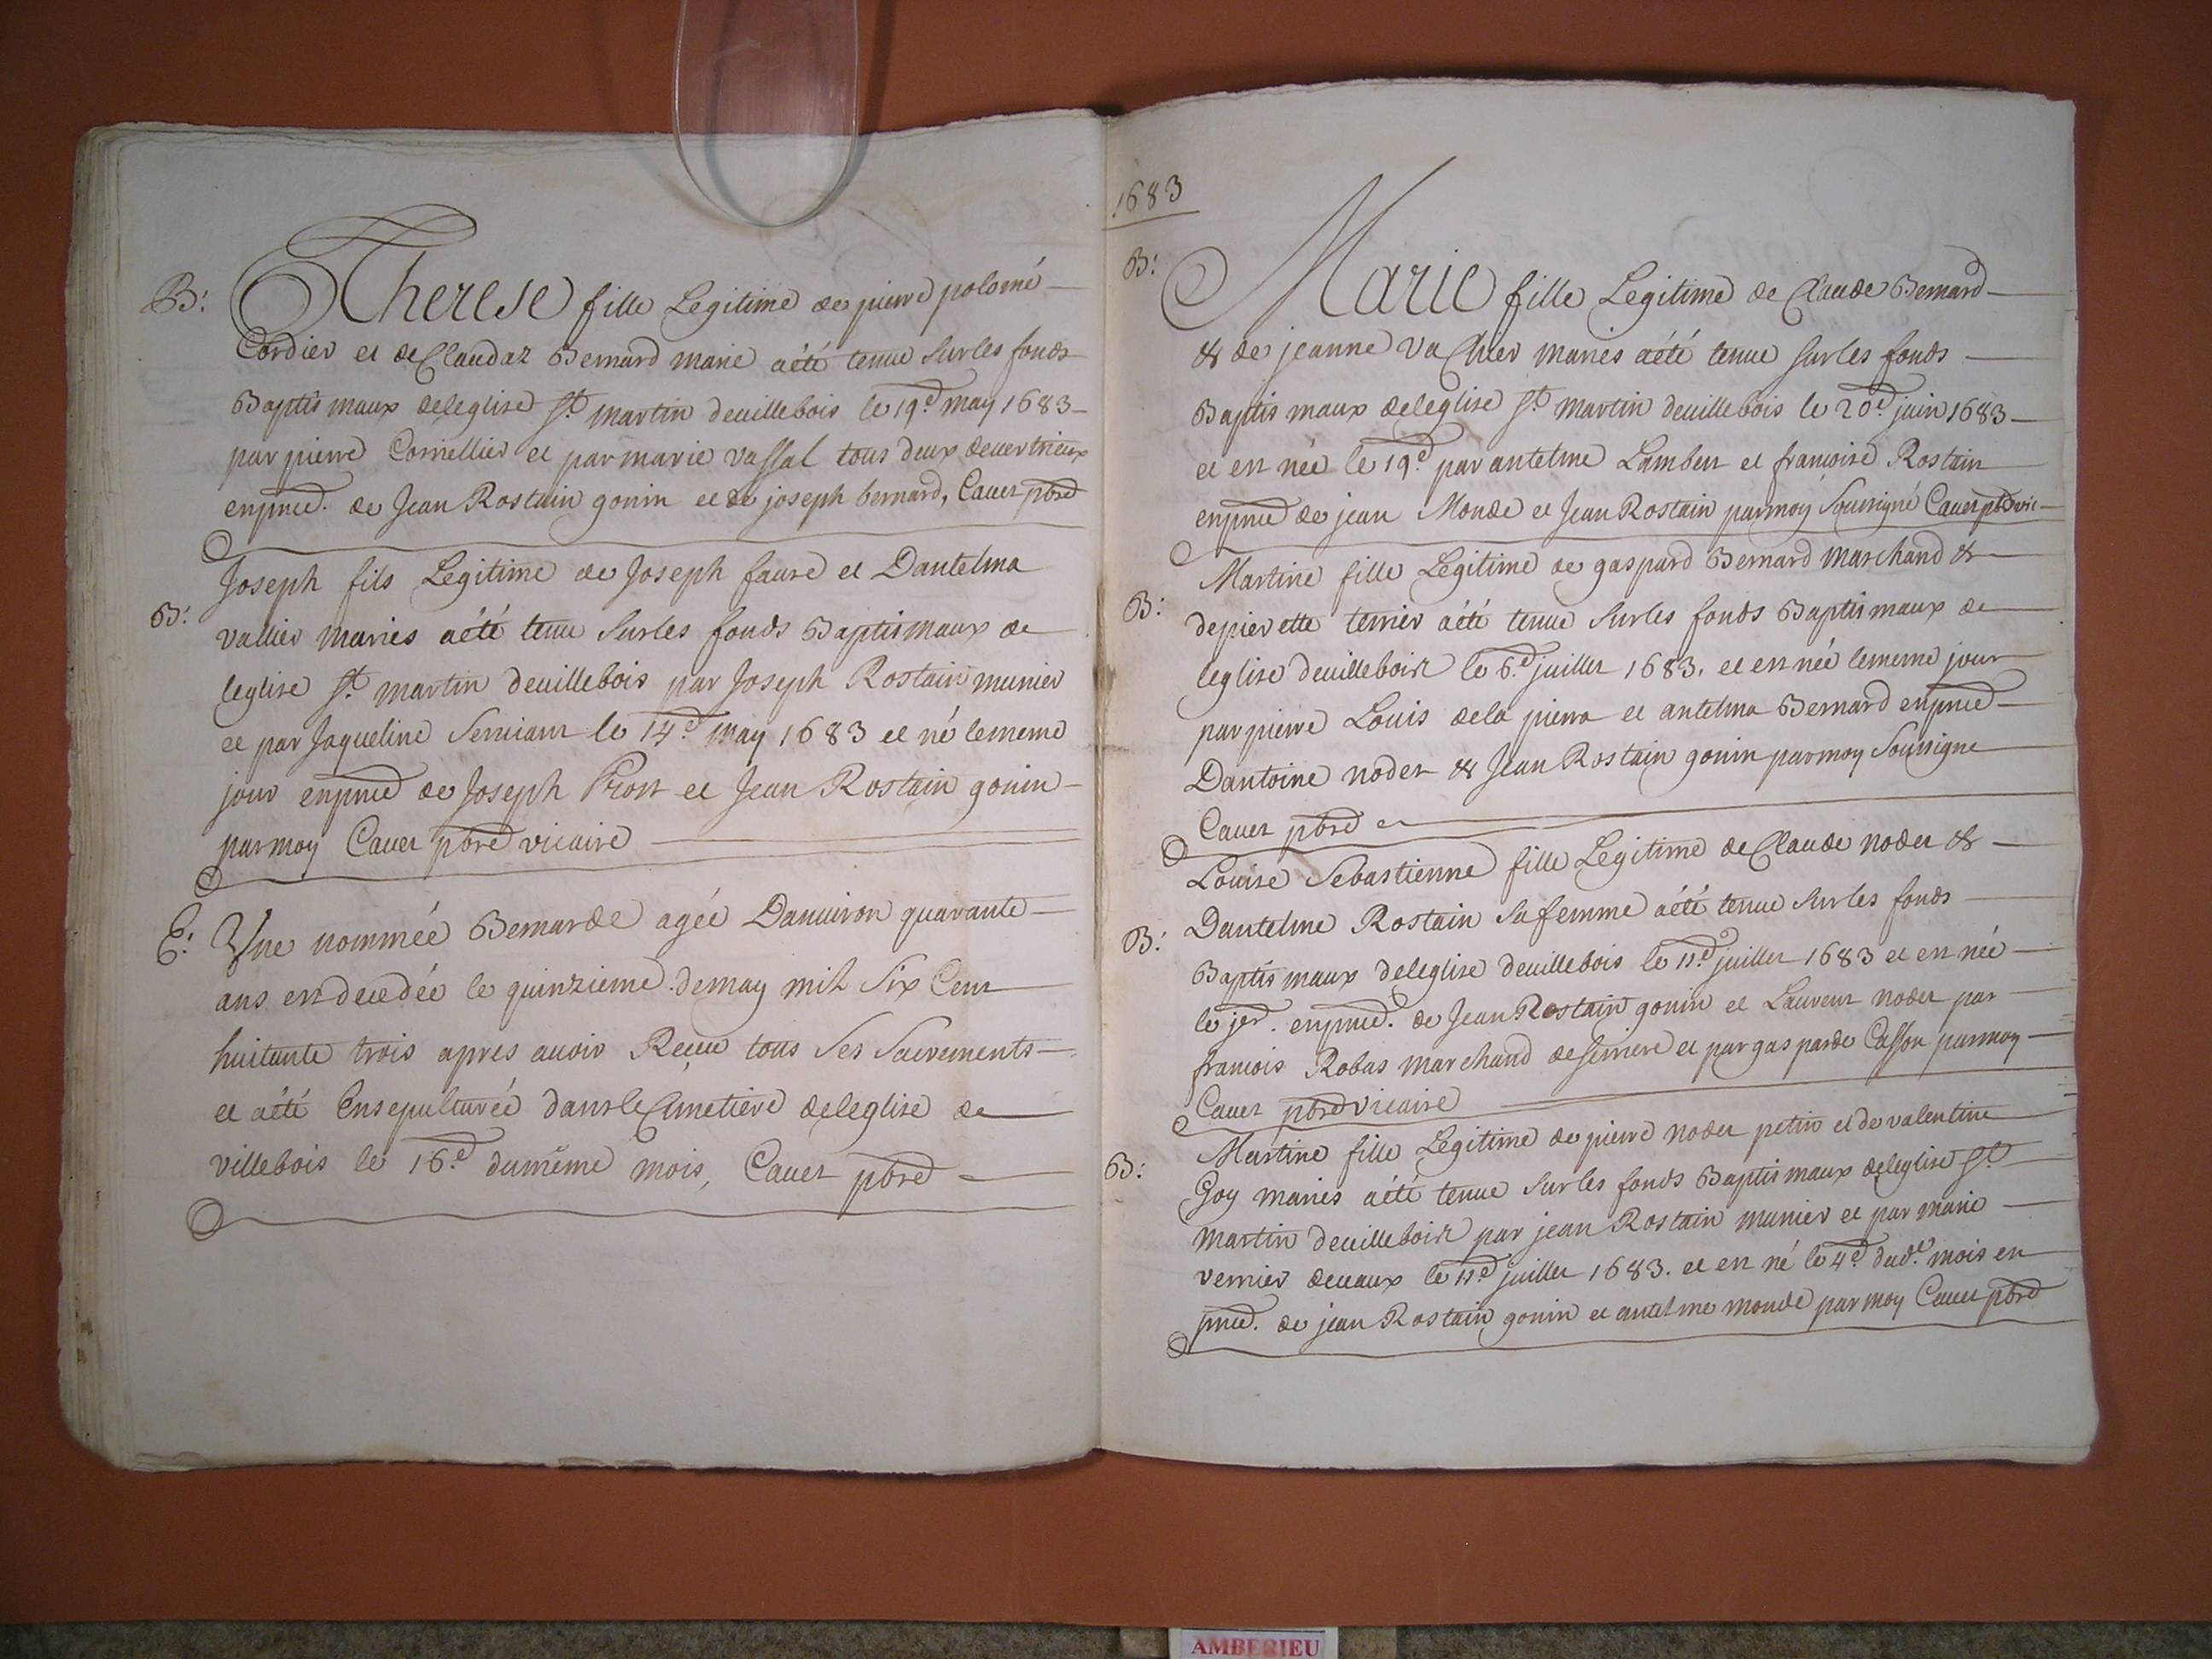 B: Therese fille Legitime de pierre polomé
Cordier et de Claudaz Bernard marie aété tenue Sur les fonds
Baptismaux deleglise St. martin deuillebois le 19e may 1683
par pierre Cornellier et par marie vassal tous deux deuertrieux
enpnce. de Jean Rostain gonin et de joseph bernard, Cauet pbre
Joseph fils Legitime de Joseph faure et Dantelma
B: vallier mariés aété tenu Sur les fonds Baptismaux de
leglise St. martin deuillebois par Joseph Rostain munier
et par Jaqueline le 14e may 1683 et né lememe
jour enpnce de Joseph Prost et Jean Rostain gonin
parmoy Cauet pbre vicaire
E: Une nommée Bernarde agée Danuiron quarante
ans est decedée le quinzieme demay mil Six Cent
huitante trois apres auoir Reçeu tous Ses Sacrements
et aété Ensepulturée dans le Cimetiere deleglise de
villebois le 16e dumême mois, Cauet pbre
1683
B: Marie fille Legitime de Claude Bernard
& de jeanne vachier mariés aété tenue sur les fonds
Baptismaux deleglise St martin deuillebois le 20e juin 1683
et est née le 19e par antelme Lambert et francoise Rostain
enpnce de jean Monde et Jean Rostain parmoy Soussigné Cauet pbre vic
Martine fille Legitime de gaspard Bernard marchand &
B: depierette terrier aété tenue Sur les fonds Baptismaux de
leglise deuillebois le 6e juillet 1683. et est née lememe jour
par pierre Louis dela pierra et antelma Bernard enpnce
Dantoine nodet & Jean Rostain gonin parmoy Soussigne
Cauet pbre
Louise Sebastienne fille Legitime de Claude nodet &
B: Dantelme Rostain Safemme aété tenue Sur les fonds
Baptismaux deleglise deuillebois le 11e juillet 1683 et est née
le jer. enpnce. de Jean Rostain gonin et Laurent nodet par
francois Robas marchand de serriere et par gasparde Casson parmoy
Cauet pbre vicaire
Martine fille Legitime de pierre nodet petin et de valentine
B: Goy mariés aété tenue Sur les fonds Baptismaux deleglise St
martin deuillebois par jean Rostain munier et par marie
vernier deuaux le 11e juillet 1683. et est né le 4e dud. mois en
pnce. de jean Rostain gonin et antelme monde parmoy Cauet pbre
AMBERIEU